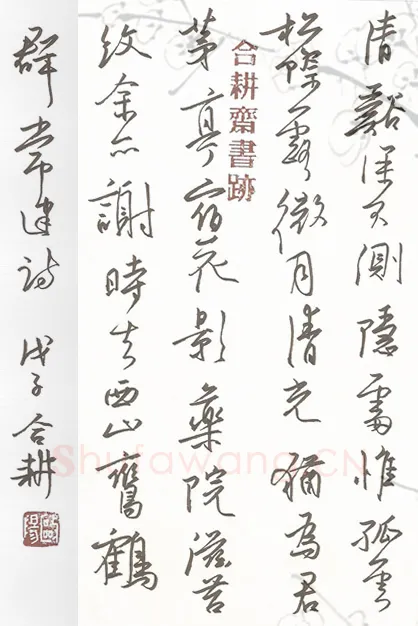 清谿深不測隱處惟孤雲
松際露微月清光猶為君
茅亭宿花影藥院滋苔
紋余亦謝時去西山鸞鶴
群 常建詩 戊子合耕
合耕齋書跡
Shufawang.CN